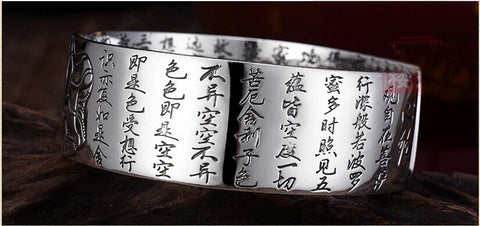 观自在菩萨
行深般若波罗
蜜多时照见五
蕴皆空度一切
苦厄舍利子色
不异空空不异
色色即是空空
即是色受想行
识亦复如是舍